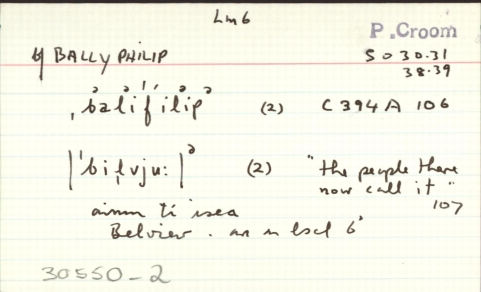 Lm6
P. Croom
BALLYPHILIP
S 030.31
38.39
ˌbalifˈilip (2) C394A 106
|ˈbilvju:| (2) "the people there
now call it"
107
ainm tí
Belview. an
30550-2